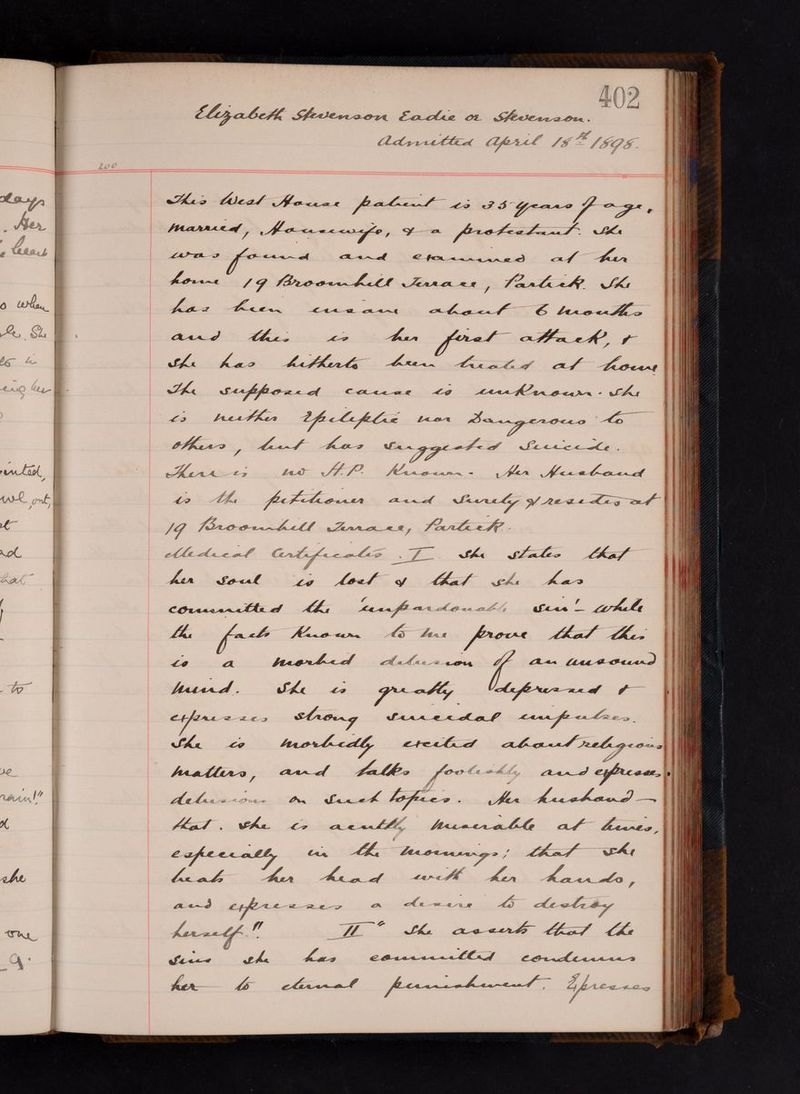 402
Elizabeth Stevenson Eadie or Stevenson.
Admitted April 18th 1898.
200
This West House patient is 35 years of age,
married, Housewife, & a protestant. She
was found and examined at her
home 19 Broomhill Terrace, Partick. She
has been insane about 6 months
and this is her first attack, &
she has hitherto been treated at home
The supposed cause is unknown. She
is neither Epileptic nor Dangerous to
others, but has suggested Suicide.
There is no H.P. Known. Her Husband
is the petitioner and Surety & resides at
19 Broomhill Terrace, Partick.
Medical Certificates. I She states that
her soul is lost & that she has
committed the 'unpardonable sin' - while
the facts known to me prove that this
is a morbid delusion of an unsound
mind. She is greatly depressed &
expresses strong suicidal impulses.
She is morbidly excited about religious
matters, and talks foolishly and expresses
delusions on such topics. Her husband —
that. she is acutely miserable at times,
especially in the mornings; that she
beats her head with her hands,
and expresses a desire to destroy
herself." II " She asserts that the
sins she has committed condemns
her to eternal punishment. Expresses
days
. Her
heart
o when
. She
to in
ing her
ointed,
out,
at
ad
hat
- to
rain!"
she
one
9.